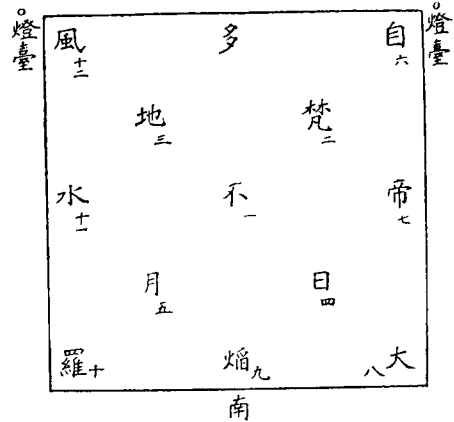 燈臺
燈臺
風 十二
多
自 六
地 三
梵 二
水 十一
不 一
帝 七
月 五
日 四
羅 十
焔 九
大 八
南